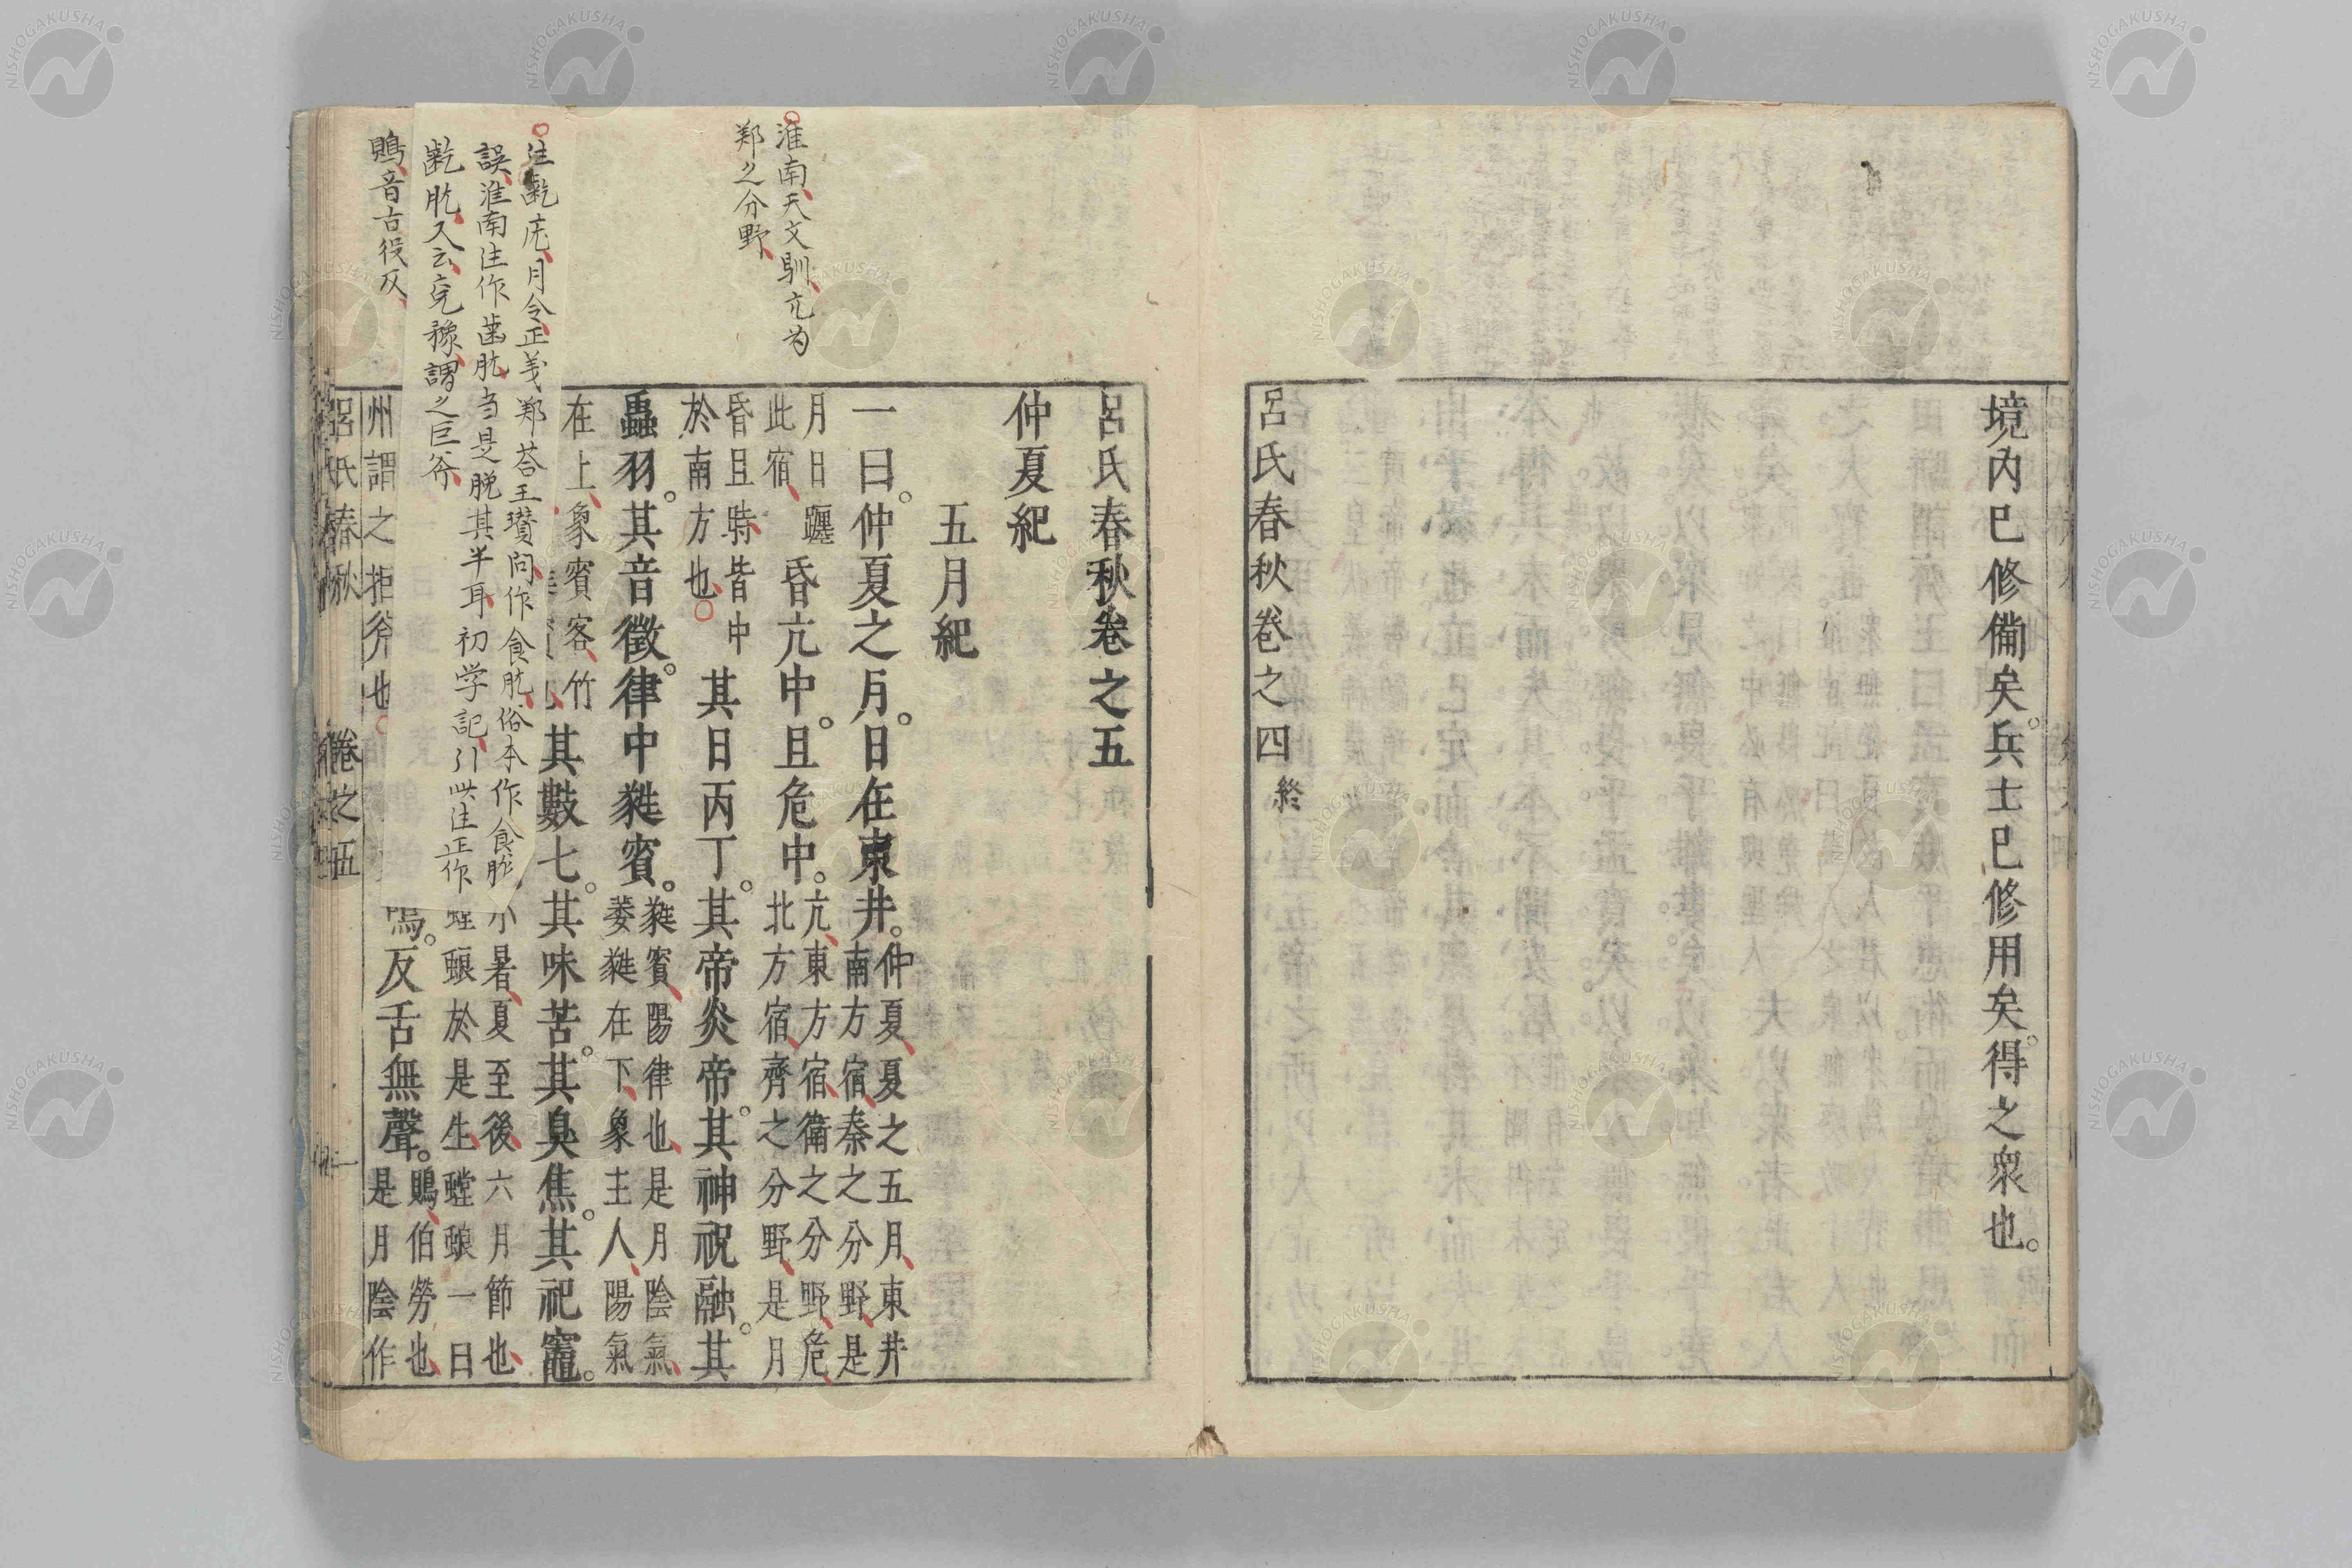 境內已修備矣。兵士已修用矣。得之衆也。
呂氏春秋卷之四 終
呂氏春秋卷之五
仲夏紀
五月紀
一曰。仲夏之月。日在東井。仲夏夏之五月東井
南方宿秦之分野是
月日躔
此宿
昏亢中。旦危中。亢東方宿衞之分野危
北方宿齊之分野是月
昏旦時皆中
於南方也
其日丙丁。其帝炎帝。其神祝融。其
蟲羽。其音徵。律中蕤賓。蕤賓陽律也是月陰氣
萎蕤在下象主人陽氣
在上象賓客竹
其數七。其味苦。其臭焦。其祀竈。
小暑夏至後六月節也
螳蜋於是生螳蜋一曰
鵙。反舌無聲。鵙伯勞也
是月陰作
州謂之拒斧也
呂氏春秋 卷之五 一
淮南天文馴亢为
郑之分野
注齕疣月令正義郑荅王瓚问作食肬俗本作食肬
誤淮南注作齒肬当是脱其半耳初学記引此注正作
齕肬又云兗豫謂之巨斧
鵙音古役反
NISHOGAKUSHA
NISHOGAKUSHA
NISHOGAKUSHA
NISHOGAKUSHA
NISHOGAKUSHA
NISHOGAKUSHA
NISHOGAKUSHA
NISHOGAKUSHA
NISHOGAKUSHA
NISHOGAKUSHA
NISHOGAKUSHA
NISHOGAKUSHA
NISHOGAKUSHA